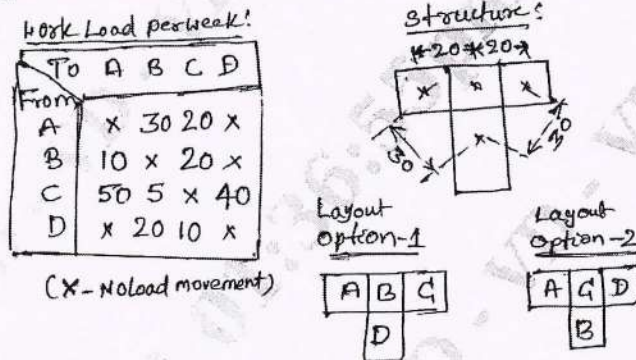 Work Load perweek:
To A B C D
From
A × 30 20 ×
B 10 × 20 ×
C 50 5 × 40
D × 20 10 ×
(X - No load movement)
Structure:
20 20
30 30
Layout
option-1
A B C
D
Layout
option-2
A C D
B